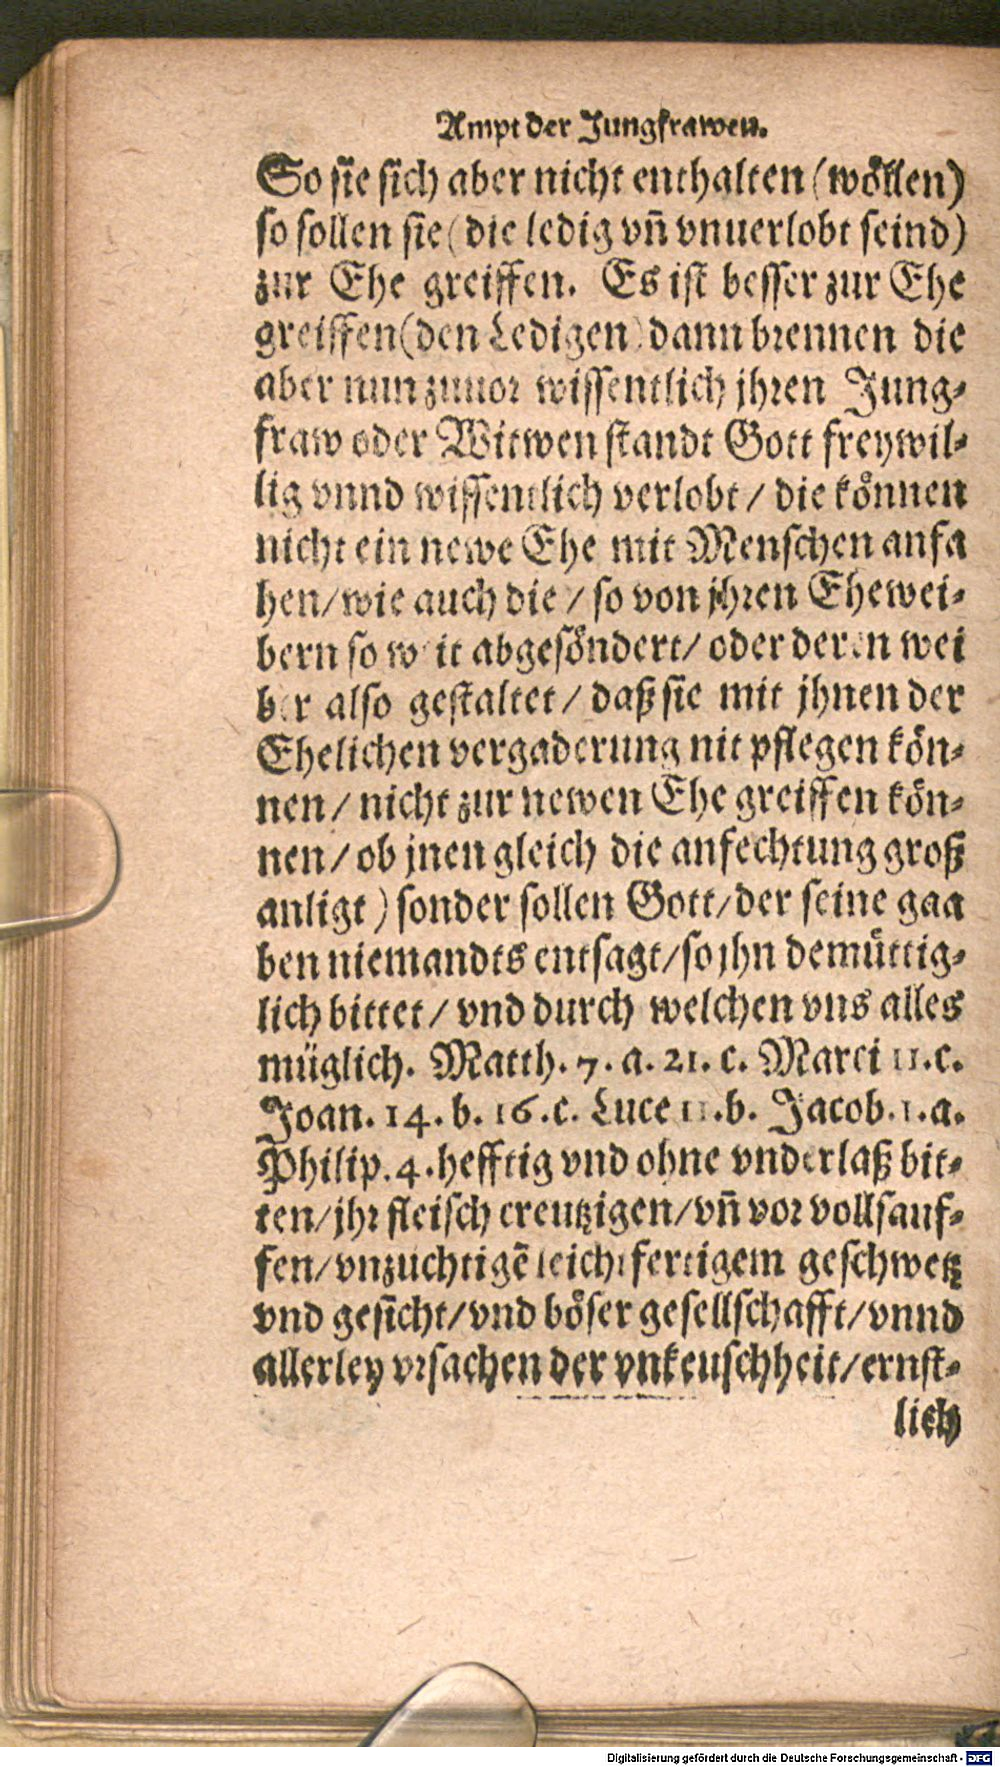 Ampt der Jungfrawen.
So sie sich aber nicht enthalten (wöllen)
so sollen sie (die ledig vñ vnuerlobt seind)
zur Ehe greiffen. Es ist besser zur Ehe
greiffen (den Ledigen) dann brennen die
aber nun zuuor wissentlich jhren Jung-
fraw oder Witwen standt Gott freywil-
lig vnnd wissentlich verlobt / die können
nicht ein newe Ehe mit Menschen anfa
hen / wie auch die / so von jhren Ehewei-
bern so weit abgesöndert / oder deren wei
ber also gestaltet / daß sie mit jhnen der
Ehelichen vergaderung nit pflegen kön-
nen / nicht zur newen Ehe greiffen kön-
nen / ob jnen gleich die anfechtung groß
anligt ) sonder sollen Gott / der seine gaa
ben niemandts entsagt / so jhn demüttig-
lich bittet / vnd durch welchen vns alles
müglich. Matth. 7. a. 21. c. Marci 11. c.
Joan. 14. b. 16. c. Luce 11. b. Jacob. 1. a.
Philip. 4. hefftig vnd ohne vnderlaß bit-
ten / jhr fleisch creutzigen / vñ vor vollsauf-
fen / vnzuchtigẽ leichtfertigem geschwetz
vnd gesicht / vnd böser gesellschafft / vnnd
allerley vrsachen der vnkeuschheit / ernst-
lich
Digitalisierung gefördert durch die Deutsche Forschungsgemeinschaft - DFG